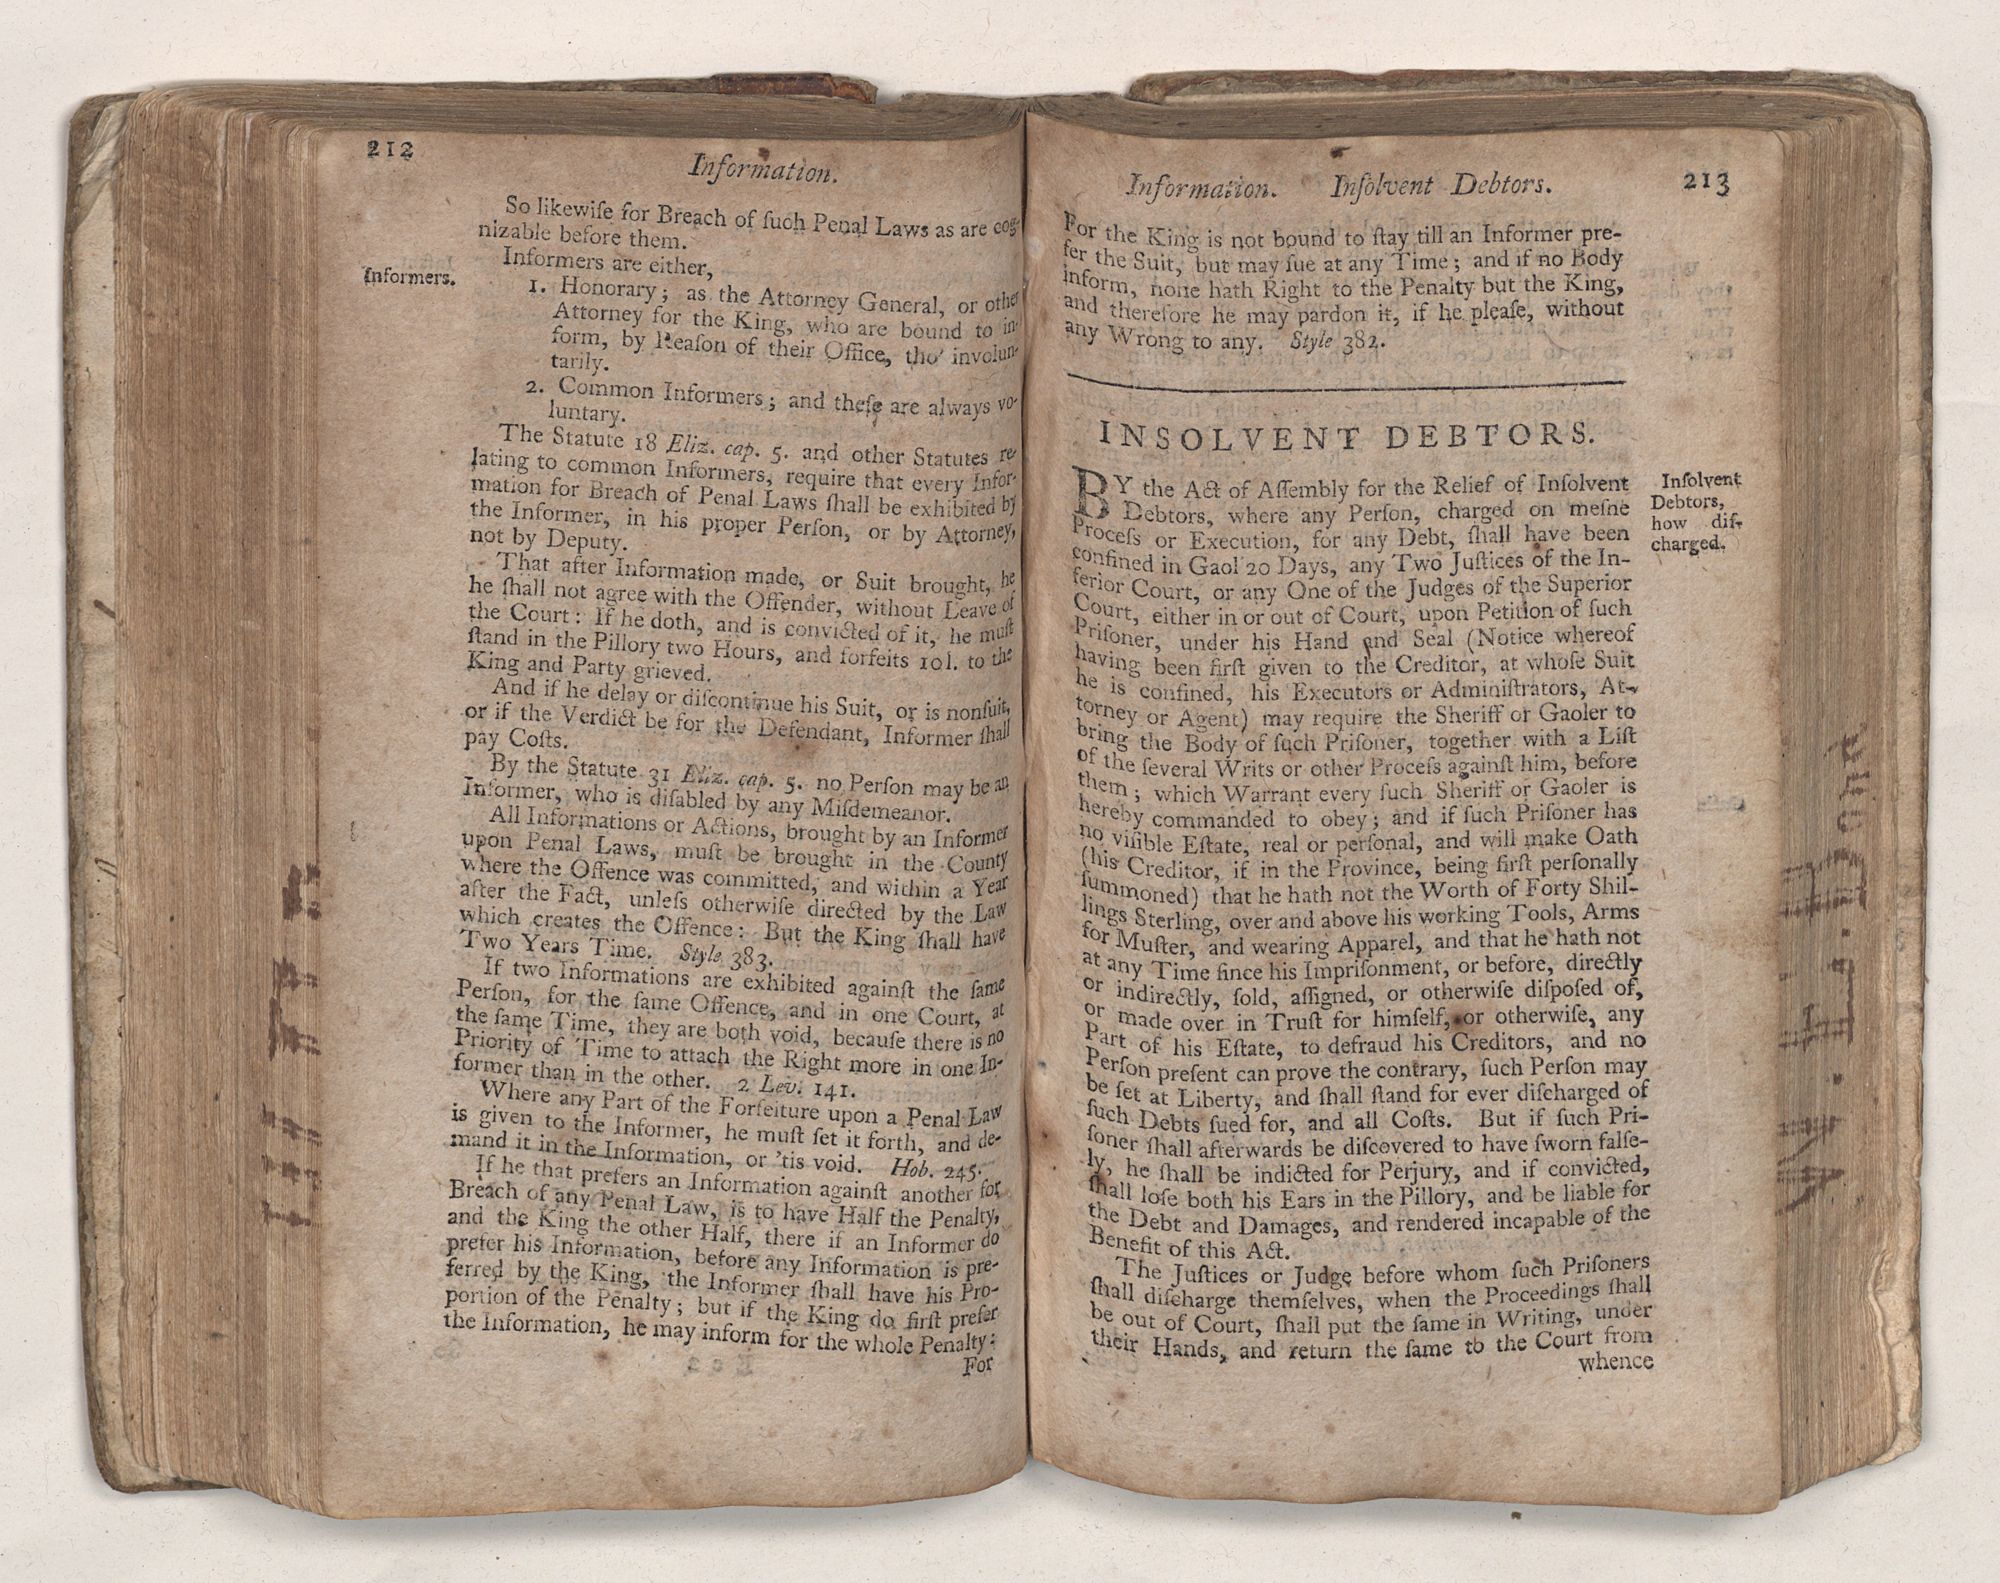 212
Information.
So likewiſe for Breach of ſuch Penal Laws as are cog-
nizable before them.
Informers.
Informers are either,
1. Honorary; as the Attorney General, or other
Attorney for the King, who are bound to in-
form, by Reaſon of their Office, tho' involun-
tarily.
2. Common Informers; and theſe are always vo-
luntary.
The Statute 18 Eliz. cap. 5. and other Statutes re-
lating to common Informers, require that every Infor-
mation for Breach of Penal Laws ſhall be exhibited by
the Informer, in his proper Perſon, or by Attorney,
not by Deputy.
That after Information made, or Suit brought, he
he ſhall not agree with the Offender, without Leave of
the Court: If he doth, and is convicted of it, he muſt
ſtand in the Pillory two Hours, and forfeits 10l. to the
King and Party grieved.
And if he delay or diſcontinue his Suit, or is nonſuit,
or if the Verdict be for the Defendant, Informer ſhall
pay Coſts.
By the Statute 31 Eliz. cap. 5. no Perſon may be an
Informer, who is diſabled by any Miſdemeanor.
All Informations or Actions, brought by an Informer
upon Penal Laws, muſt be brought in the County
where the Offence was committed, and within a Year
after the Fact, unleſs otherwiſe directed by the Law
which creates the Offence: But the King ſhall have
Two Years Time. Style 383.
If two Informations are exhibited againſt the ſame
Perſon, for the ſame Offence, and in one Court, at
the ſame Time, they are both void, becauſe there is no
Priority of Time to attach the Right more in one In-
former than in the other. 2 Lev. 141.
Where any Part of the Forfeiture upon a Penal Law
is given to the Informer, he muſt ſet it forth, and de-
mand it in the Information, or 'tis void. Hob. 245.
If he that prefers an Information againſt another for
Breach of any Penal Law, is to have Half the Penalty,
and the King the other Half, there if an Informer do
prefer his Information, before any Information is pre-
ferred by the King, the Informer ſhall have his Pro-
portion of the Penalty; but if the King do firſt prefer
the Information, he may inform for the whole Penalty:
For
Information. Inſolvent Debtors.
213
For the King is not bound to ſtay till an Informer pre-
fer the Suit, but may ſue at any Time; and if no Body
inform, none hath Right to the Penalty but the King,
and therefore he may pardon it, if he pleaſe, without
any Wrong to any. Style 382.
INSOLVENT DEBTORS.
BY the Act of Aſſembly for the Relief of Inſolvent
Debtors, where any Perſon, charged on meſne
Proceſs or Execution, for any Debt, ſhall have been
confined in Gaol 20 Days, any Two Juſtices of the In-
ferior Court, or any One of the Judges of the Superior
Court, either in or out of Court, upon Petition of ſuch
Priſoner, under his Hand and Seal (Notice whereof
having been firſt given to the Creditor, at whoſe Suit
he is confined, his Executors or Adminiſtrators, At-
torney or Agent) may require the Sheriff or Gaoler to
bring the Body of ſuch Priſoner, together with a Liſt
of the ſeveral Writs or other Proceſs againſt him, before
them; which Warrant every ſuch Sheriff or Gaoler is
hereby commanded to obey; and if ſuch Priſoner has
no viſible Eſtate, real or perſonal, and will make Oath
(his Creditor, if in the Province, being firſt perſonally
ſummoned) that he hath not the Worth of Forty Shil-
lings Sterling, over and above his working Tools, Arms
for Muſter, and wearing Apparel, and that he hath not
at any Time ſince his Impriſonment, or before, directly
or indirectly, ſold, aſſigned, or otherwiſe diſpoſed of,
or made over in Truſt for himſelf, or otherwiſe, any
Part of his Eſtate, to defraud his Creditors, and no
Perſon preſent can prove the contrary, ſuch Perſon may
be ſet at Liberty, and ſhall ſtand for ever diſcharged of
ſuch Debts ſued for, and all Coſts. But if ſuch Pri-
ſoner ſhall afterwards be diſcovered to have ſworn falſe-
ly, he ſhall be indicted for Perjury, and if convicted,
ſhall loſe both his Ears in the Pillory, and be liable for
the Debt and Damages, and rendered incapable of the
Benefit of this Act.
The Juſtices or Judge before whom ſuch Priſoners
ſhall diſcharge themſelves, when the Proceedings ſhall
be out of Court, ſhall put the ſame in Writing, under
their Hands, and return the ſame to the Court from
whence
Inſolvent
Debtors,
how diſ-
charged.